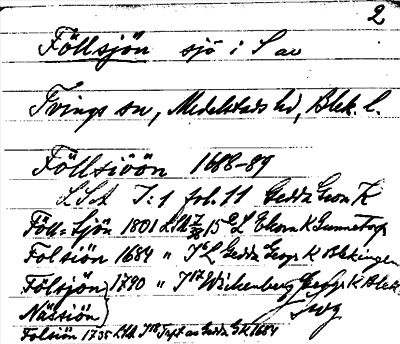 2
Föllsjön sjö i S av
Tvings sn, Medelstads hd, Blek. l.
Föllsiöön 1688-89
LSA I:1 fol. 11 Gedda Geom K
Föll-Sjön 1801 15 Ekorn K Gunnetorp
Folsiön 1684 " L Gedda Geogr K Blekingen
Fölsjön 1790 " Wickenberg Geogr K Blek
Nässiön
Folsiön 1735 av Gedda GK 1684